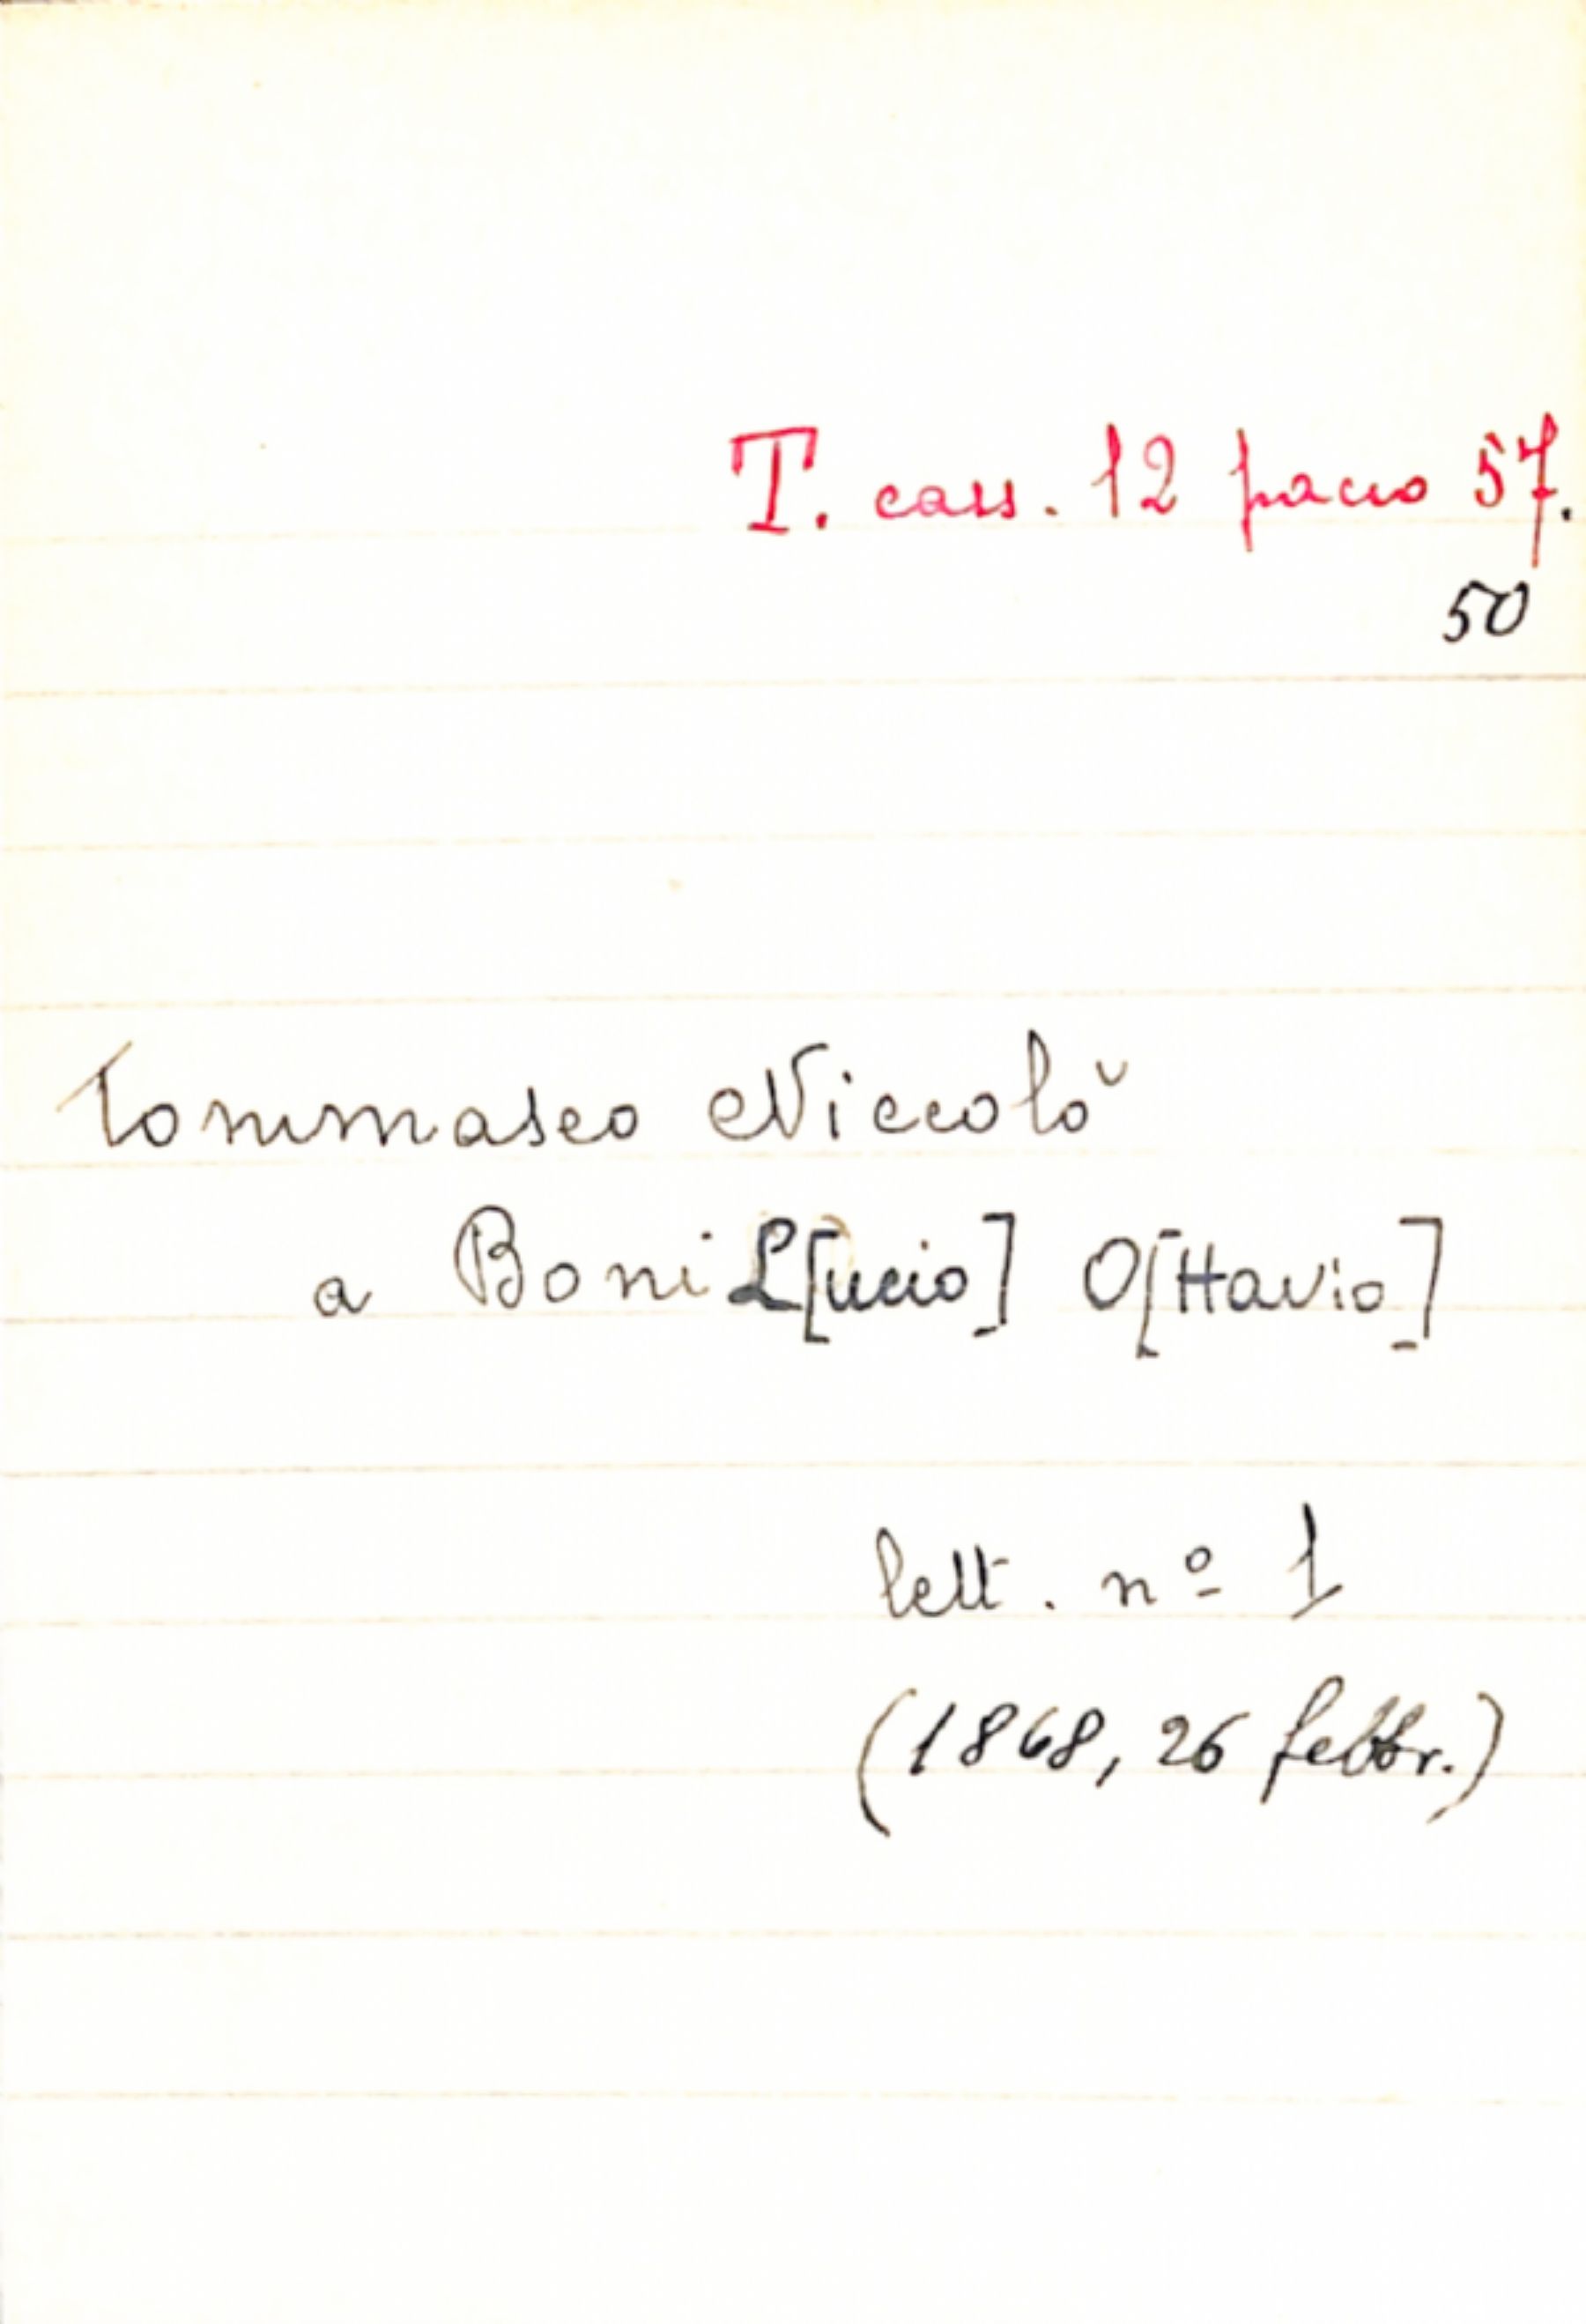 T. cass. 12 pacco 57.
50
Tommaseo Niccolò
a Boni L[ucio] O[ttavio]
lett. nº 1
(1868, 26 febbr.)